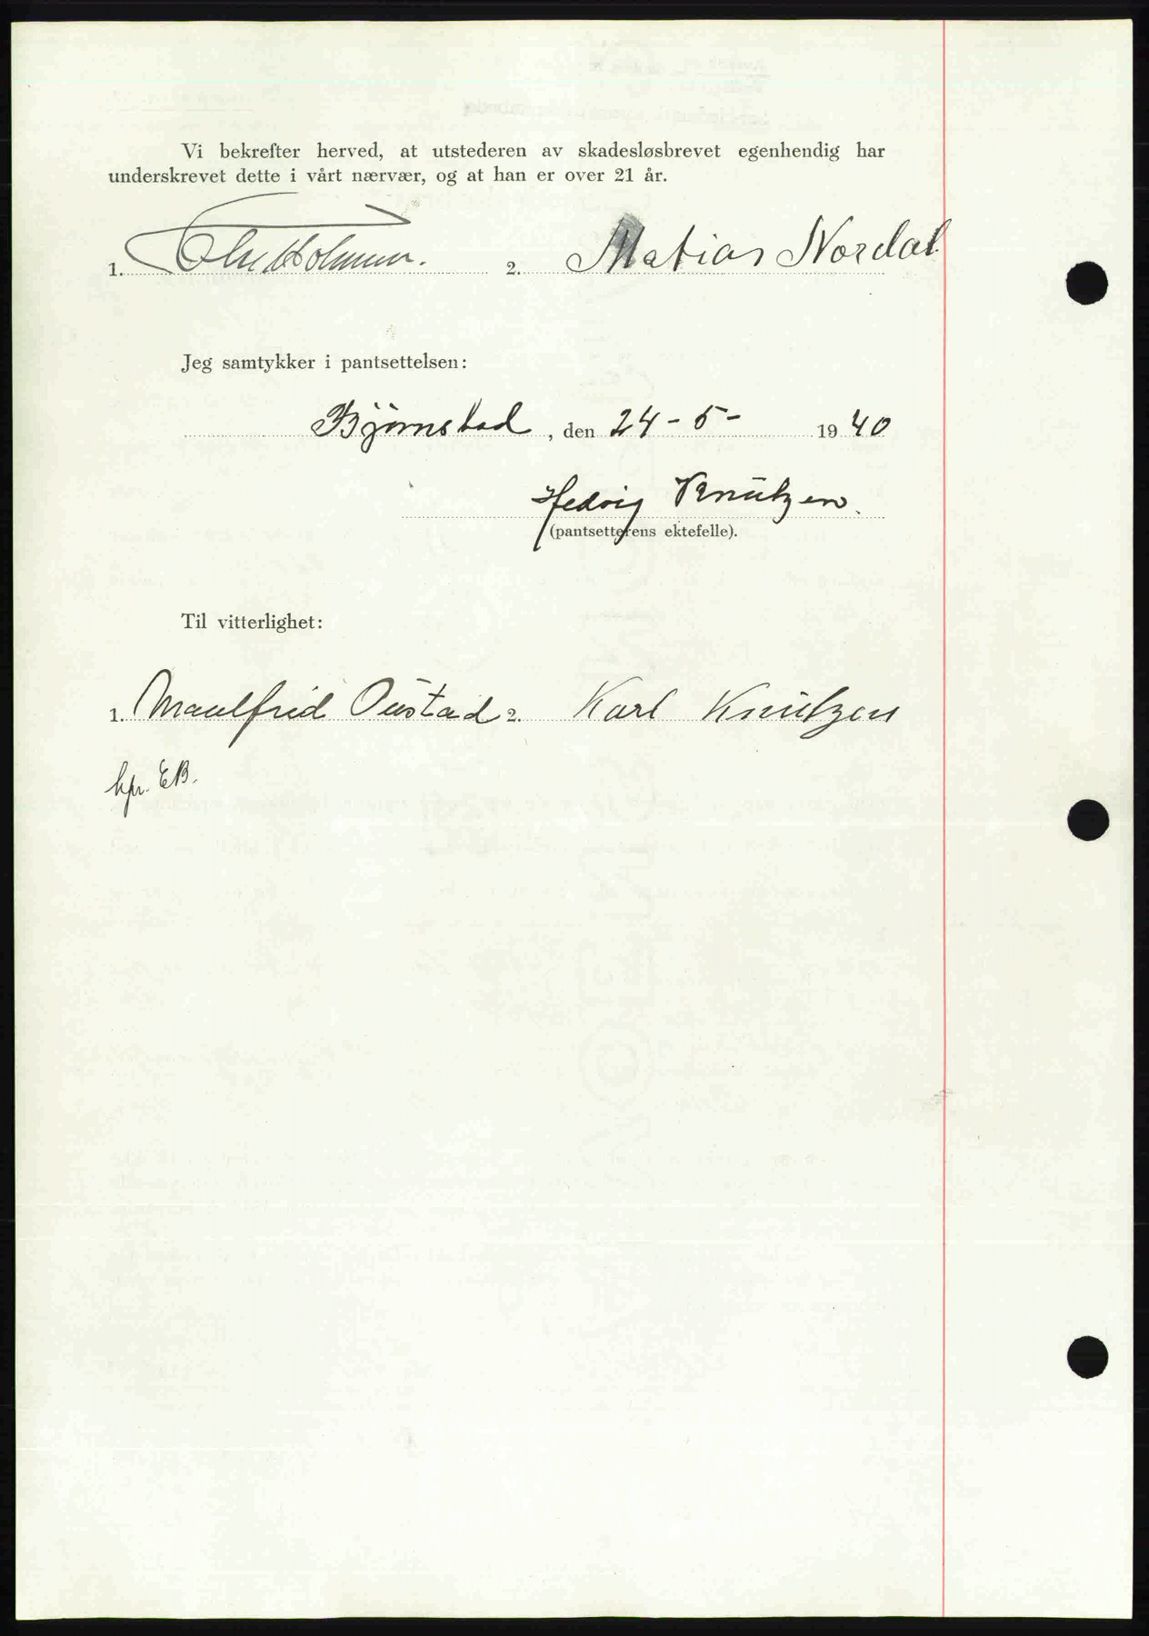 Vi bekrefter herved, at utstederen av skadesløsbrevet egenhendig har
underskrevet dette i vårt nærvær, og at han er over 21 år.
1. 2. Matias Nordal
Jeg samtykker i pantsettelsen:
Bjørnstad, den 24-5- 1940
Hedvig Knutzen.
(pantsetterens ektefelle).
Til vitterlighet:
1. Maulfrid Oustad 2. Karl Knutzen
hpr. EB.